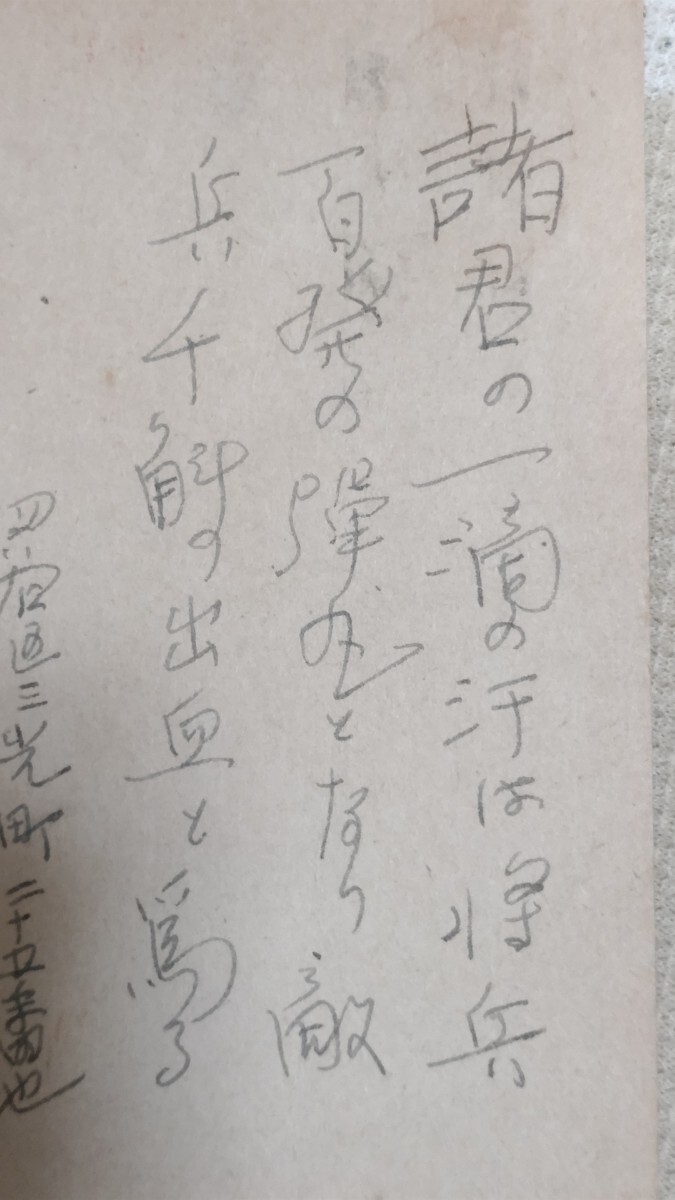 諸君の一滴の汗は将兵
百発の弾丸となり敵
兵千斛の出血と爲る
四谷区三光町二十五番地